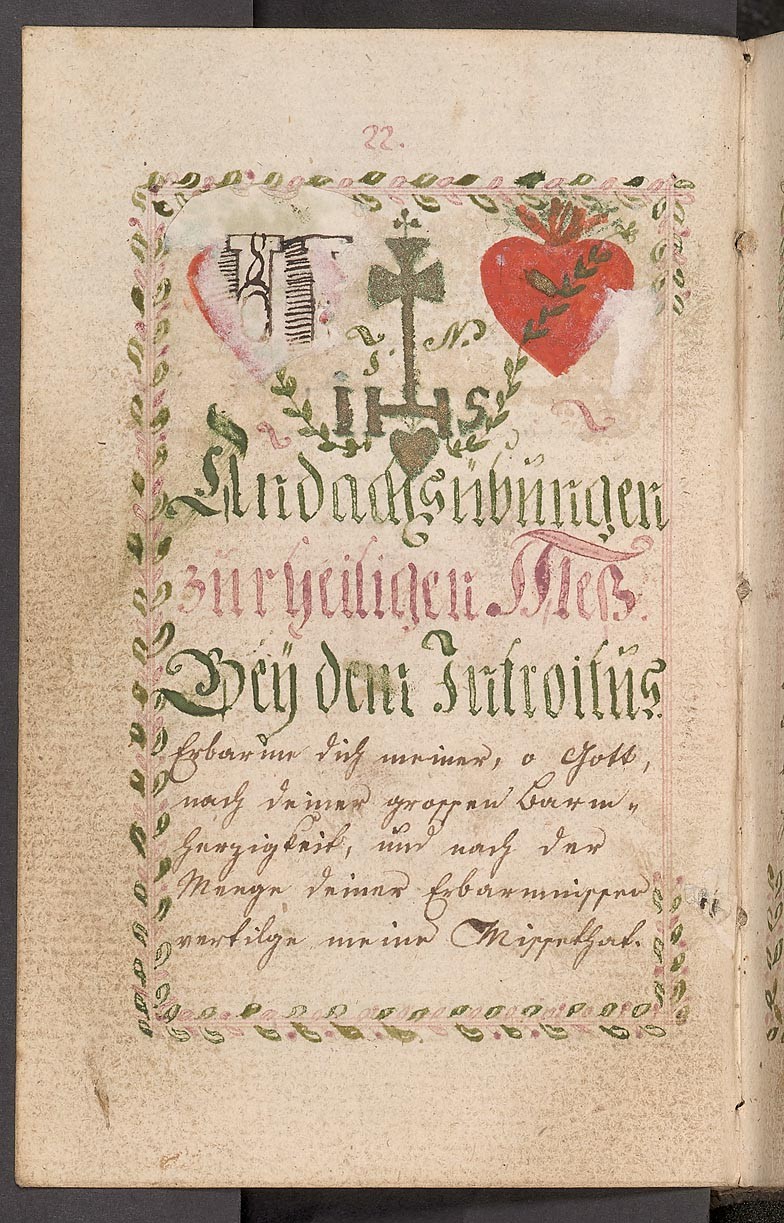 22.
J. N.
IHS
Andachsübüngen
zür heiligen Meß.
Beÿ dem Introitüs.
Erbarme dich meiner, o Gott,
nach deiner grossen Barm-
herzigkeit, und nach der
Menge deiner Erbarmnissen
vertilge meine Missethat.